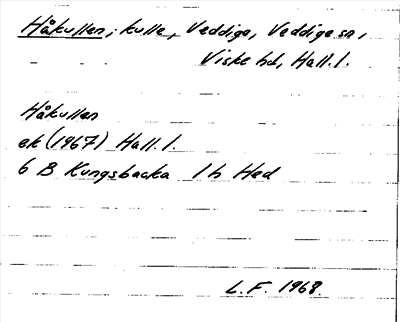 Håkullen; kulle, Veddige, Veddige sn,
Viske hd, Hall. l.
Håkullen
ek (1967) Hall. l.
6 B Kungsbacka 1 h Hed
L.F. 1968